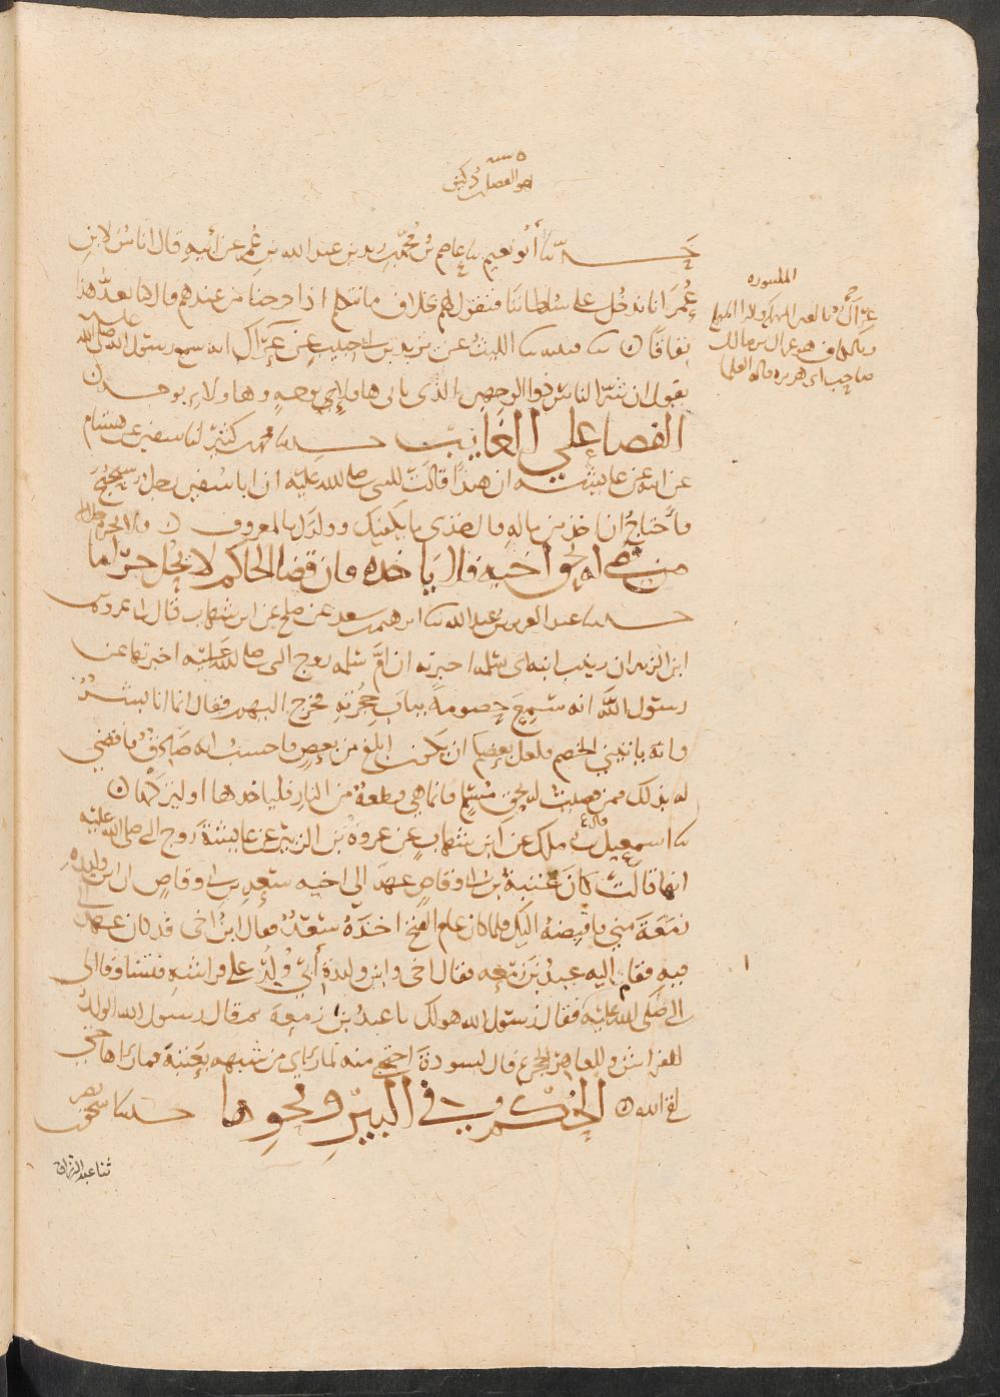 هو الفضل بن دكين
حدثنا أبو نعيم ثنا عاصم بن محمد بن زيد بن عبد الله بن عمر عن أبيه قال اناس لابن
عمر انا ندخل على سلطاننا فنقول لهم بخلاف ما نتكلم اذا خرجنا من عندهم قال كنا نعد هذا
نفاقا ثنا قتيبة ثنا الليث عن يزيد بن ابي حبيب عن عراك انه سمع رسول الله صلى الله عليه
يقول ان شر الناس ذوا الوجهين الذى ياتى هاولاء بوجه وهاولاء بوجه
القضا على الغايب حدثنا محمد بن كثير انا سفين عن هشام
عن ابيه عن عايشة ان هندا قالت للنبى صلى الله عليه ان ابا سفين رجل شحيح
فأحتاج ان اخذ من ماله قال خذى ما يكفيك وولدك بالمعروف
من قضى له بحق اخيه فلا يأخذه فان قضا الحاكم لا يحل حراما
حدثنا عبد العزيز بن عبد الله ثنا ابرهيم بن سعد عن صلح عن ابن شهاب قال انا عروة
ابن الزبير ان زينب ابنة ابى سلمة اخبرته ان ام سلمة زوج النبى صلى الله عليه اخبرتها عن
رسول الله انه سمع خصومة بباب حجرته فخرج اليهم فقال انما انا بشر
وانه ياتيني الخصم ولعل بعضكم ان يكون ابلغ من بعض فاحسب انه صادق فاقضي
له بذلك فمن قضيت له بحق مسلم فانما هي قطعة من النار فلياخذها او ليتركها
ثنا اسمعيل ملك عن ابن شهاب عن عروة بن الزبير عن عايشة زوج النبى صلى الله عليه
انها قالت كان عتبة بن ابى وقاص عهد الى اخيه سعد بن ابى وقاص ان ابن وليدة
زمعة مني فاقبضه اليك فلما كان عام الفتح اخذه سعد فقال ابن اخى قد كان عهد الي
فيه فقام اليه عبد بن زمعة فقال اخى وابن وليدة أبي ولد على فراشه فتساوقا الى
النبى صلى الله عليه فقال رسول الله هو لك يا عبد بن زمعة ثم قال رسول الله الولد
للفراش وللعاهر الحجر ثم قال لسودة احتجبى منه لما راى من شبهه بعتبة فما راها حتى
لقى الله الحكم في البير ونحوها حدثنا اسحق بن نصر
ثنا عبد الرزاق